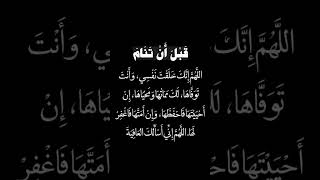 قَبْلَ أَنْ تَنَامَ
اللَّهُمَّ إِنَّكَ خَلَقْتَ نَفْسِي، وَأَنْتَ
تَوَفَّاهَا، لَكَ مَمَاتُهَا وَمَحْيَاهَا، إِنْ
أَحْيَيْتَهَا فَاحْفَظْهَا، وَإِنْ أَمَتَّهَا فَاغْفِرْ
لَهَا. اللَّهُمَّ إِنِّي أَسْأَلُكَ العَافِيَةَ